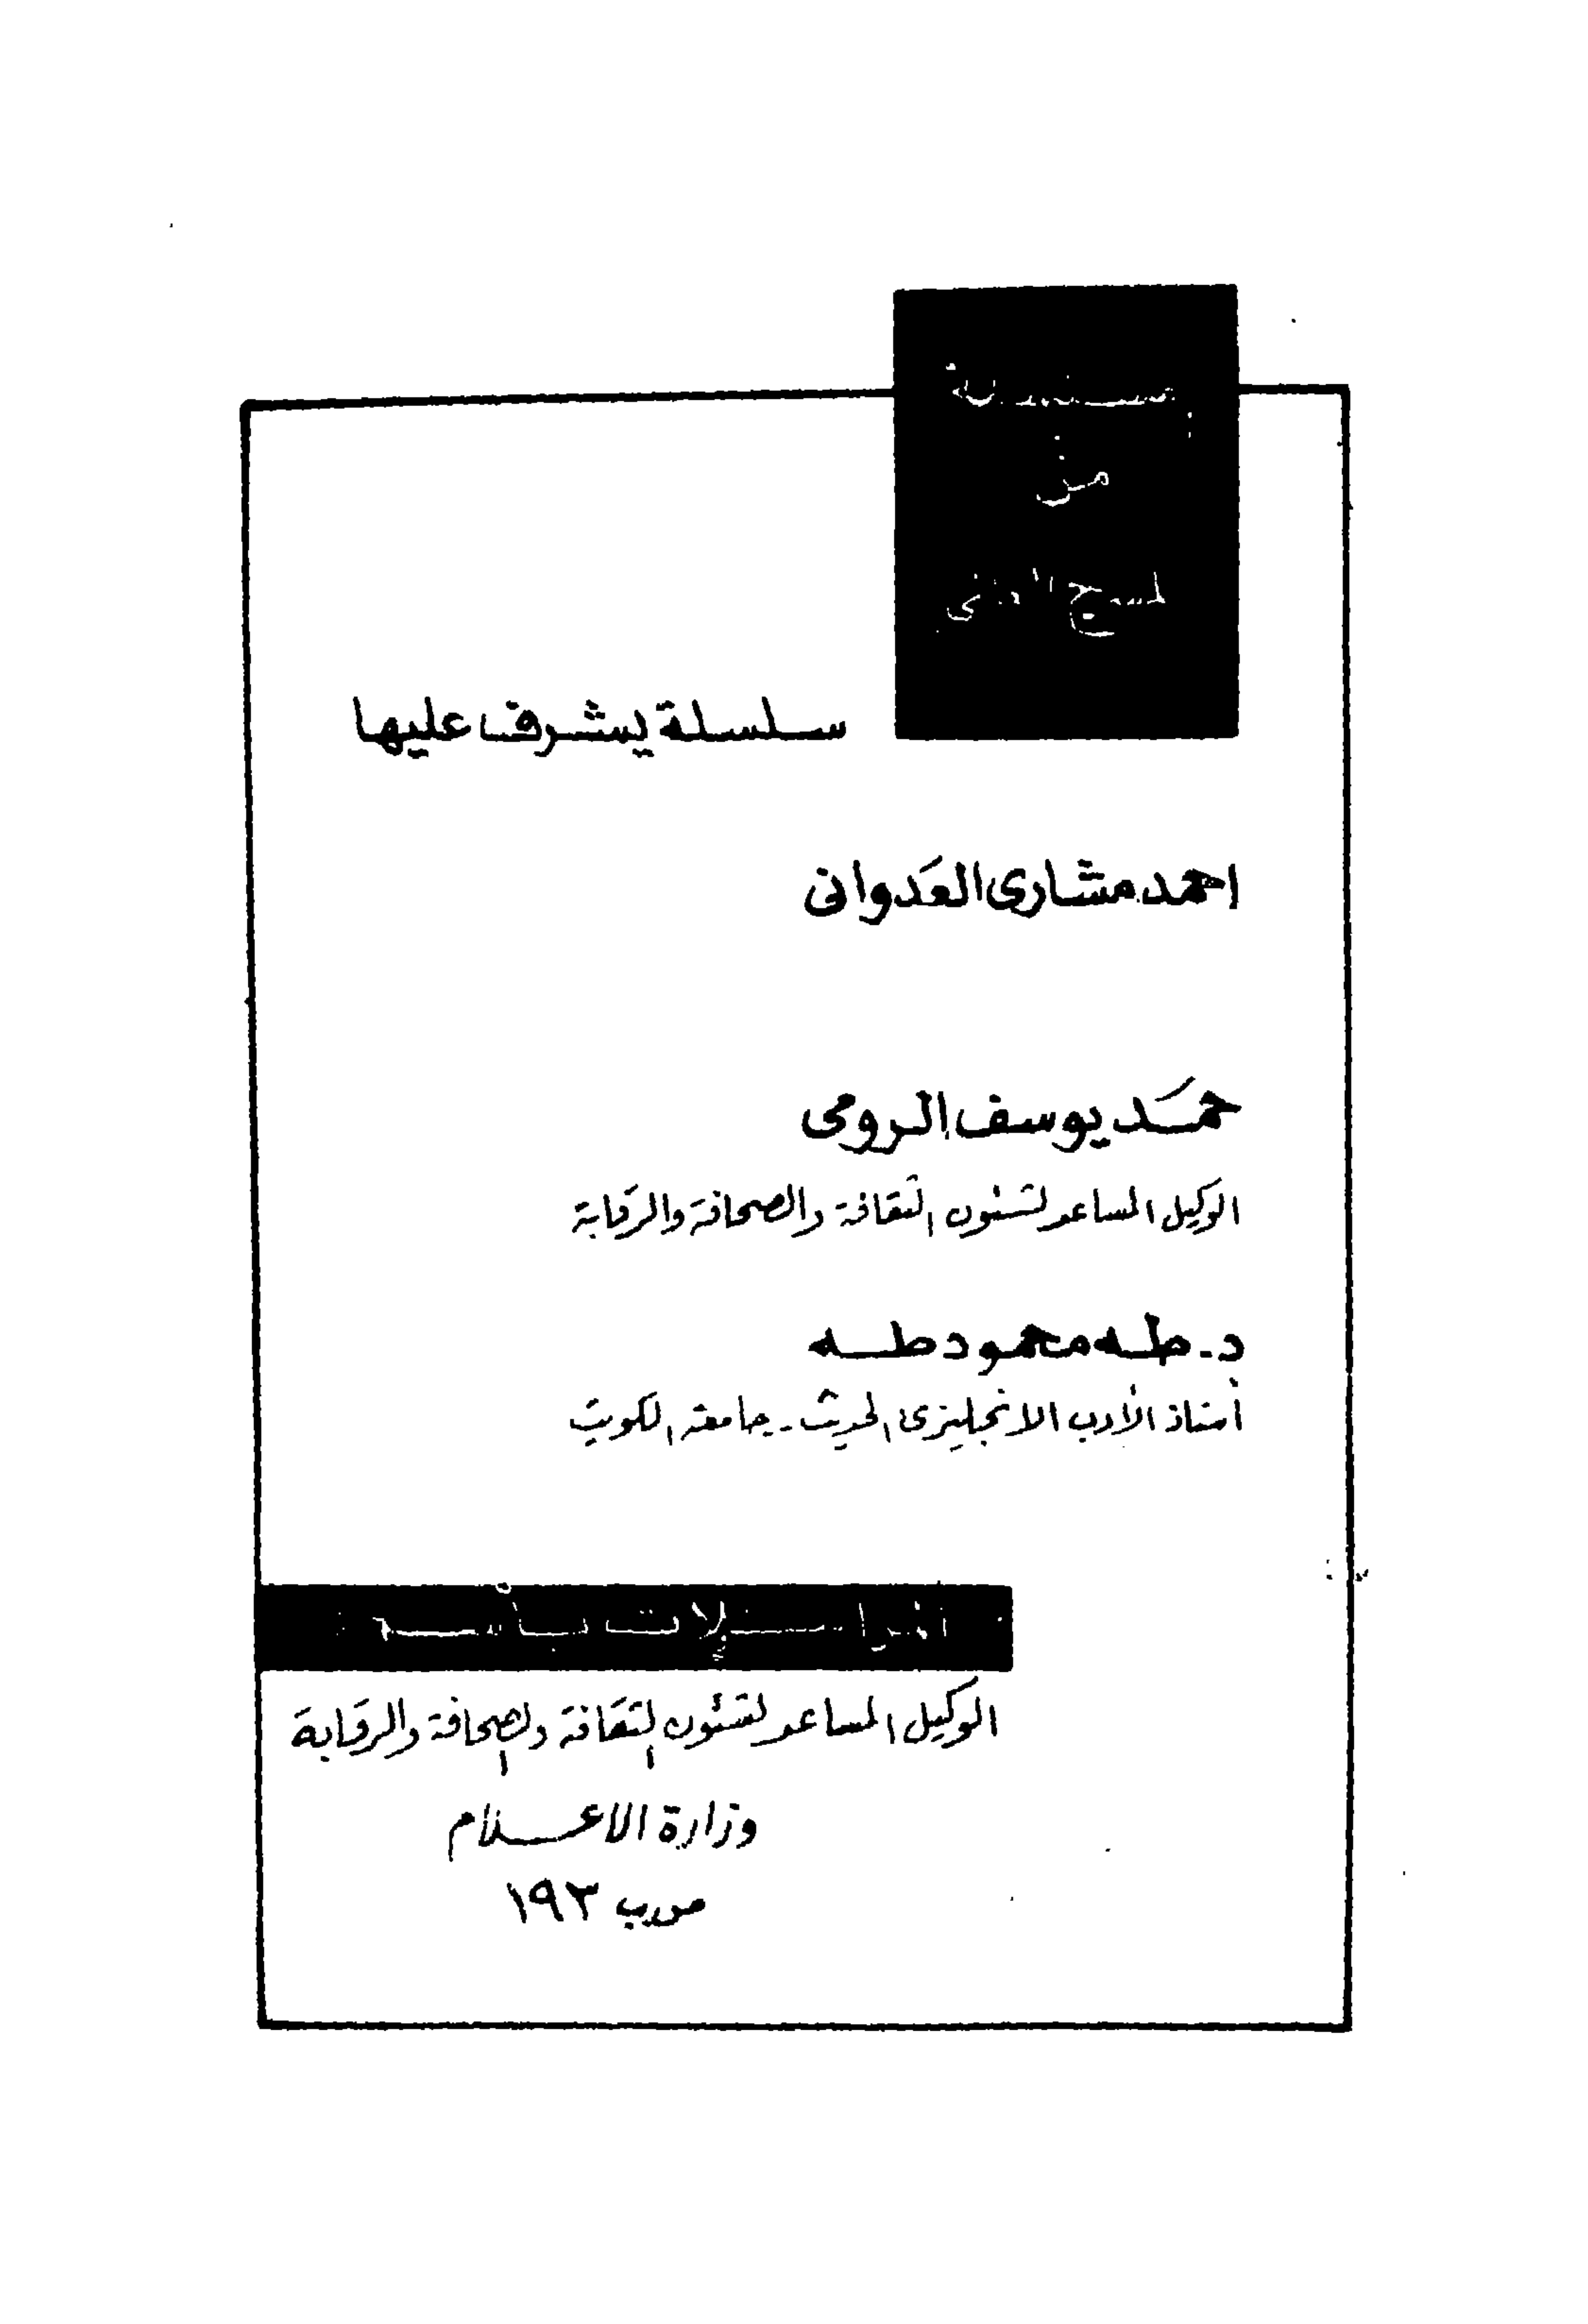 من
سلسلة يشرف عليها
احمد مشارى العدوانى
حمد يوسف الرومى
الوكيل المساعد لشئون الثقافة والصحافة والرقابة
د. طه محمود طه
أستاذ الأدب الانجليزى الحديث - جامعة الكويت
المراسلات باسم
الوكيل المساعد لشئون الثقافة والصحافة والرقابة
وزارة الاعلام
١٩٣